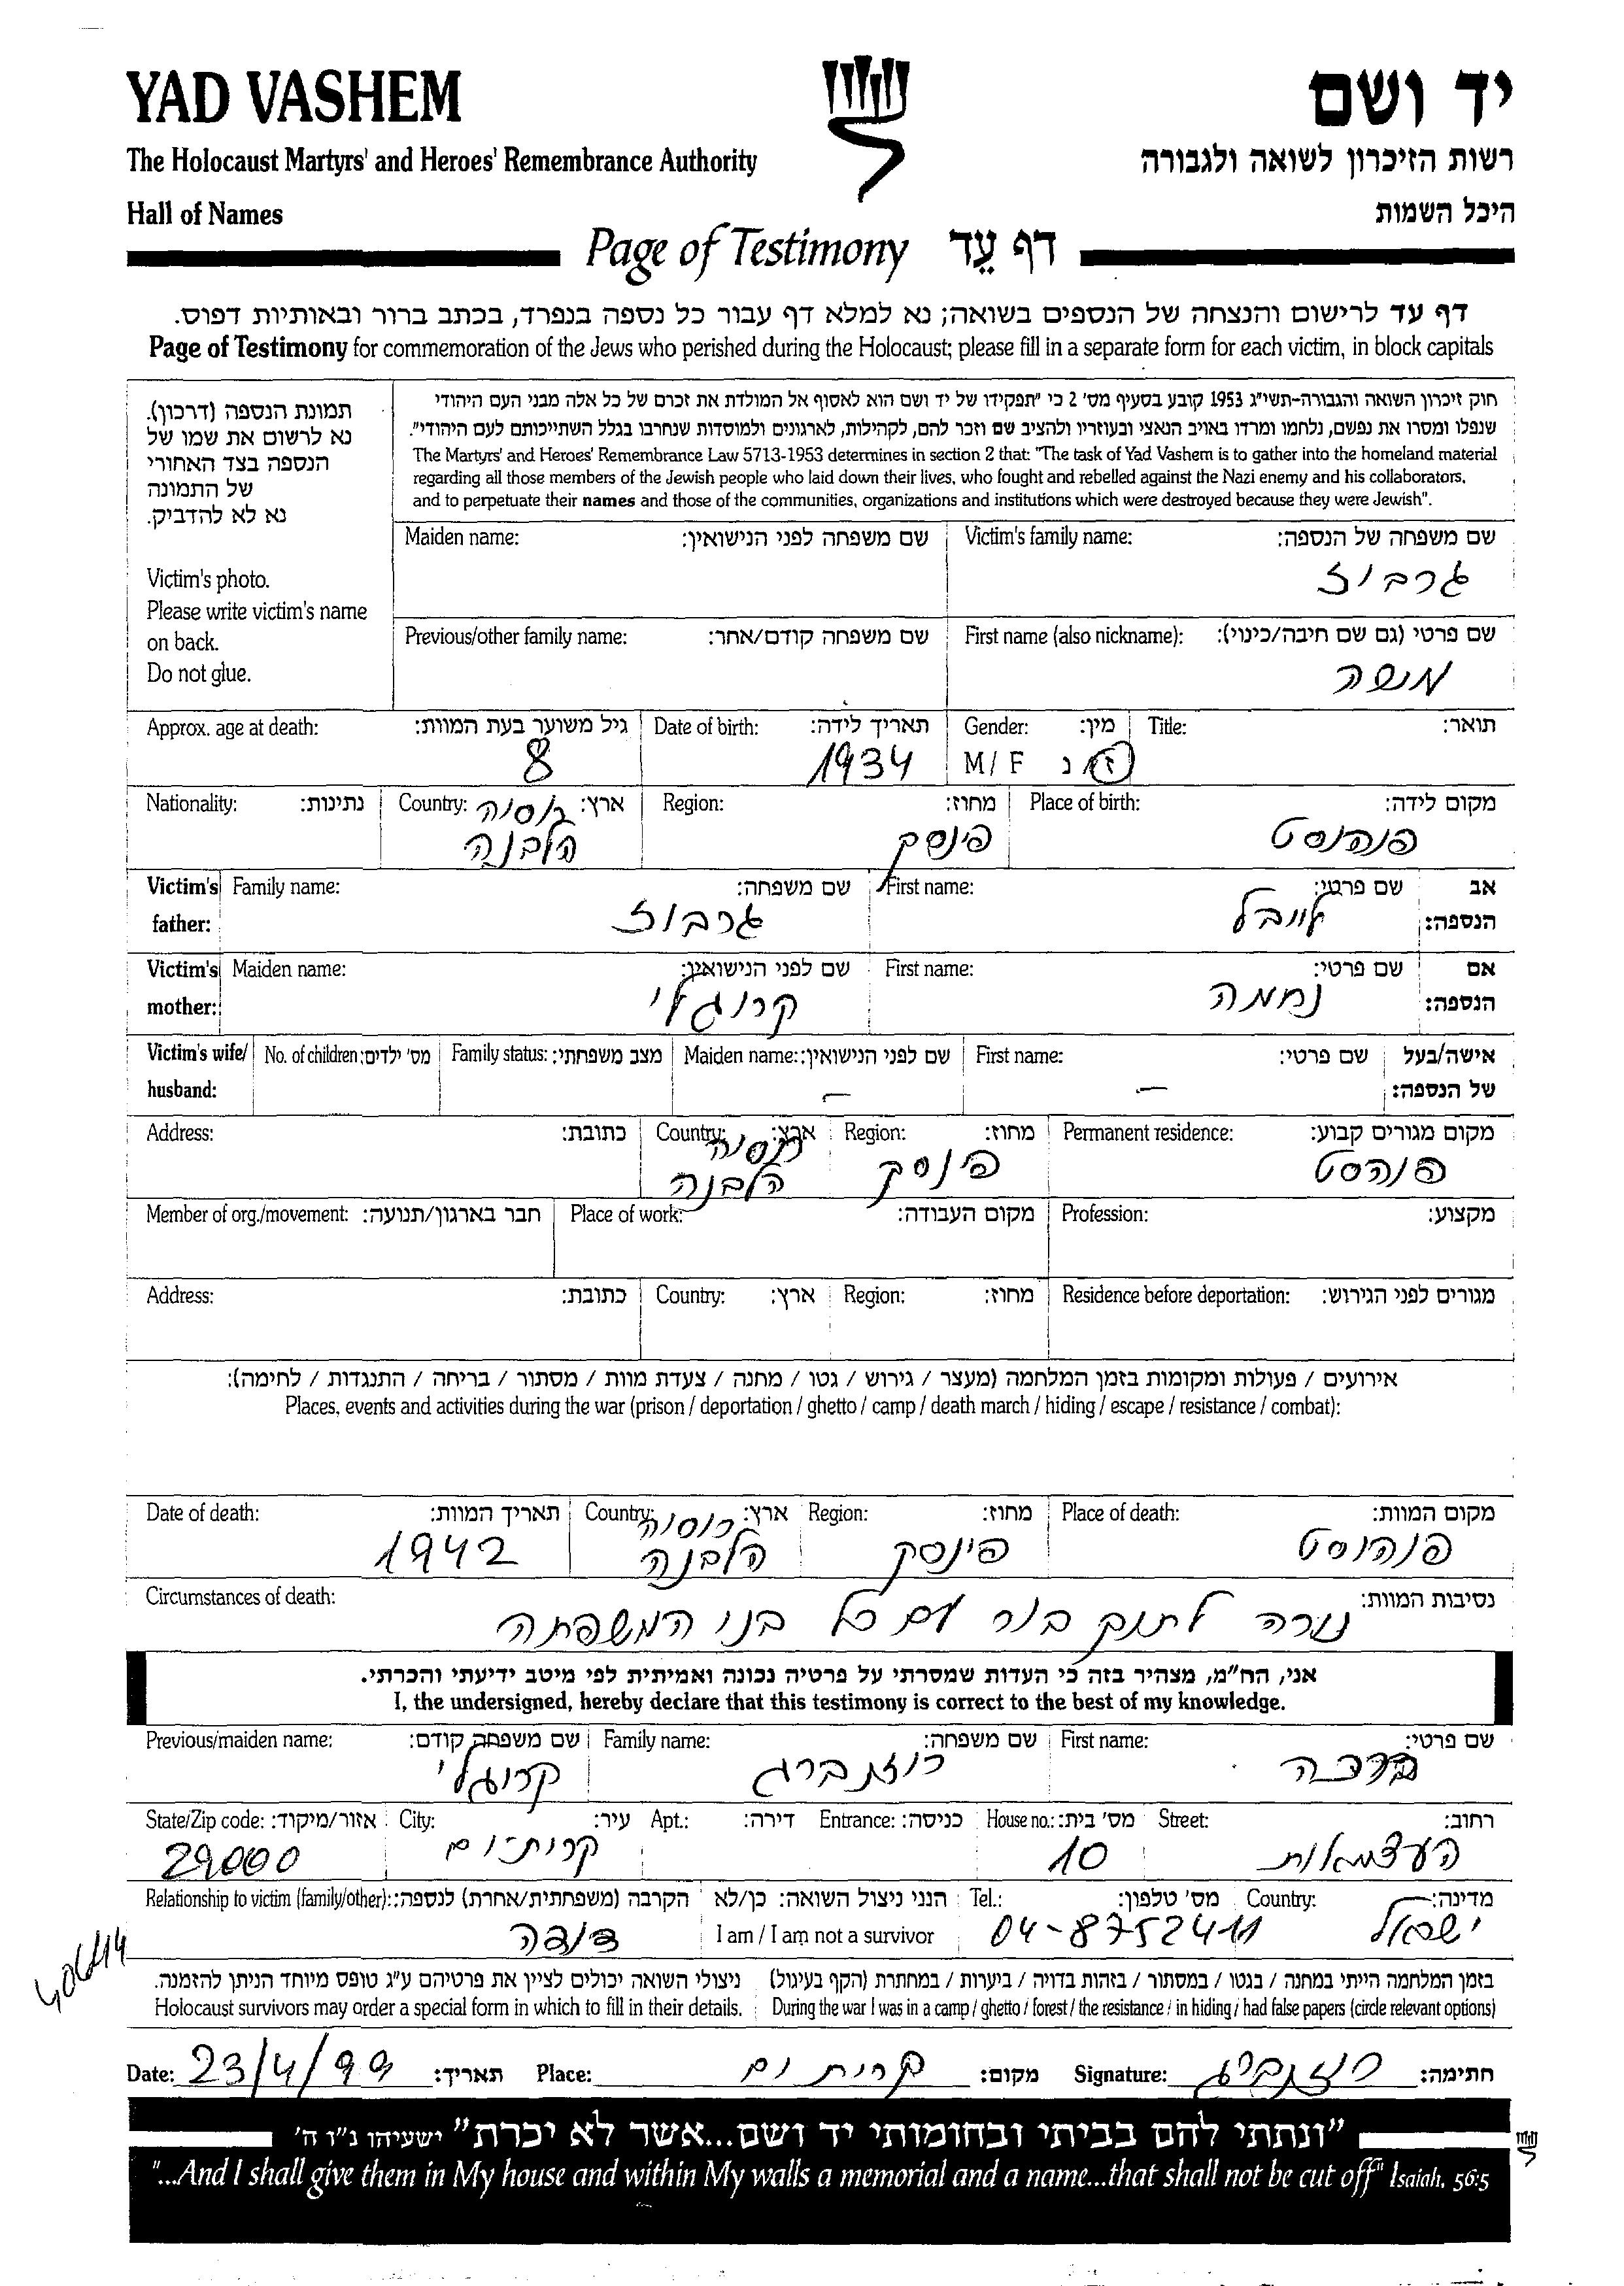 YAD VASHEM יד ושם
The Holocaust Martyrs' and Heroes' Remembrance Authority רשות הזיכרון לשואה ולגבורה
Hall of Names היכל השמות
Page of Testimony דף עֵד
דף עד לרישום והנצחה של הנספים בשואה; נא למלא דף עבור כל נספה בנפרד, בכתב ברור ובאותיות דפוס.
Page of Testimony for commemoration of the Jews who perished during the Holocaust; please fill in a separate form for each victim, in block capitals
תמונת הנספה (דרכון).
נא לרשום את שמו של
הנספה בצד האחורי
של התמונה
נא לא להדביק.
Victim's photo.
Please write victim's name
on back.
Do not glue.
חוק זיכרון השואה והגבורה-תשי"ג 1953 קובע בסעיף מס' 2 כי "תפקידו של יד ושם הוא לאסוף אל המולדת את זכרם של כל אלה מבני העם היהודי
שנפלו ומסרו את נפשם, נלחמו ומרדו באויב הנאצי ובעוזריו ולהציב שם וזכר להם, לקהילות, לארגונים ולמוסדות שנחרבו בגלל השתייכותם לעם היהודי".
The Martyrs' and Heroes' Remembrance Law 5713-1953 determines in section 2 that: "The task of Yad Vashem is to gather into the homeland material
regarding all those members of the Jewish people who laid down their lives, who fought and rebelled against the Nazi enemy and his collaborators,
and to perpetuate their names and those of the communities, organizations and institutions which were destroyed because they were Jewish".
Maiden name: שם משפחה לפני הנישואין: Victim's family name: שם משפחה של הנספה:
גרבוז
Previous/other family name: שם משפחה קודם/אחר: First name (also nickname): שם פרטי (גם שם חיבה/כינוי):
משה
Approx. age at death: גיל משוער בעת המוות: Date of birth: תאריך לידה: Gender: מין: Title: תואר:
8 1934 M / F ז / נ
Nationality: נתינות: Country: ארץ: רוסיה Region: מחוז: Place of birth: מקום לידה:
הלבנה פינסק פוהוסט
Victim's Family name: שם משפחה: First name: שם פרטי: אב
father: גרבוז לייבל הנספה:
Victim's Maiden name: שם לפני הנישואין: First name: שם פרטי: אם
mother: קרוגלי נחמה הנספה:
Victim's wife/ No. of children: מס' ילדים: Family status: מצב משפחתי: Maiden name: שם לפני הנישואין: First name: שם פרטי: אישה/בעל
husband: – – של הנספה:
Address: כתובת: Country: ארץ: רוסיה Region: מחוז: Permanent residence: מקום מגורים קבוע:
הלבנה פינסק פוהוסט
Member of org./movement: חבר בארגון/תנועה: Place of work: מקום העבודה: Profession: מקצוע:
Address: כתובת: Country: ארץ: Region: מחוז: Residence before deportation: מגורים לפני הגירוש:
אירועים / פעולות ומקומות בזמן המלחמה (מעצר / גירוש / גטו / מחנה / צעדת מוות / מסתור / בריחה / התנגדות / לחימה):
Places, events and activities during the war (prison / deportation / ghetto / camp / death march / hiding / escape / resistance / combat):
Date of death: תאריך המוות: Country: ארץ: רוסיה Region: מחוז: Place of death: מקום המוות:
1942 הלבנה פינסק פוהוסט
Circumstances of death: נסיבות המוות:
נורה לתוך בור עם כל בני המשפחה
אני, הח"מ, מצהיר בזה כי העדות שמסרתי על פרטיה נכונה ואמיתית לפי מיטב ידיעתי והכרתי.
I, the undersigned, hereby declare that this testimony is correct to the best of my knowledge.
Previous/maiden name: שם משפחה קודם: Family name: שם משפחה: First name: שם פרטי:
קרוגלי רוזנברג ברכה
State/Zip code: אזור/מיקוד: City: עיר: Apt.: דירה: Entrance: כניסה: House no.: מס' בית: Street: רחוב:
29000 קרית-ים 10 העצמאות
Relationship to victim (family/other): הקרבה (משפחתית/אחרת) לנספה: הנני ניצול השואה: כן/לא Tel.: מס' טלפון: Country: מדינה:
דודה I am / I am not a survivor 04-8752411 ישראל
ניצולי השואה יכולים לציין את פרטיהם ע"ג טופס מיוחד הניתן להזמנה. בזמן המלחמה הייתי במחנה / בגטו / במסתור / בזהות בדויה / ביערות / במחתרת (הקף בעיגול)
Holocaust survivors may order a special form in which to fill in their details. During the war I was in a camp / ghetto / forest / the resistance / in hiding / had false papers (circle relevant options)
Date: 23/4/99 תאריך: Place: קרית ים מקום: Signature: רוזנברג חתימה:
"ונתתי להם בביתי ובחומותי יד ושם...אשר לא יכרת" ישעיהו נ"ו ה'
"...And I shall give them in My house and within My walls a memorial and a name...that shall not be cut off" Isaiah, 56:5